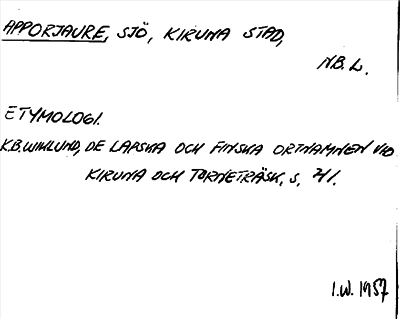 APPORJAURE, SJÖ, KIRUNA STAD,
NB.L.
ETYMOLOGI.
K.B.WIKLUND, DE LAPSKA OCH FINSKA ORTNAMNEN VID
KIRUNA OCH TORNETRÄSK, S, 71.
I.W. 1957